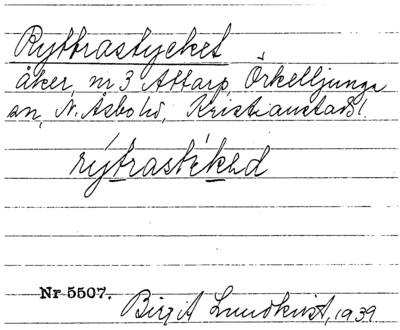 Ryttrastycket
åker, nr 3 Attarp, Örkelljunga
sn, N. Åsbohd, Kristianstads l.
rýtrastékəd
Nr 5507.
Birgit Lundkvist, 1939.